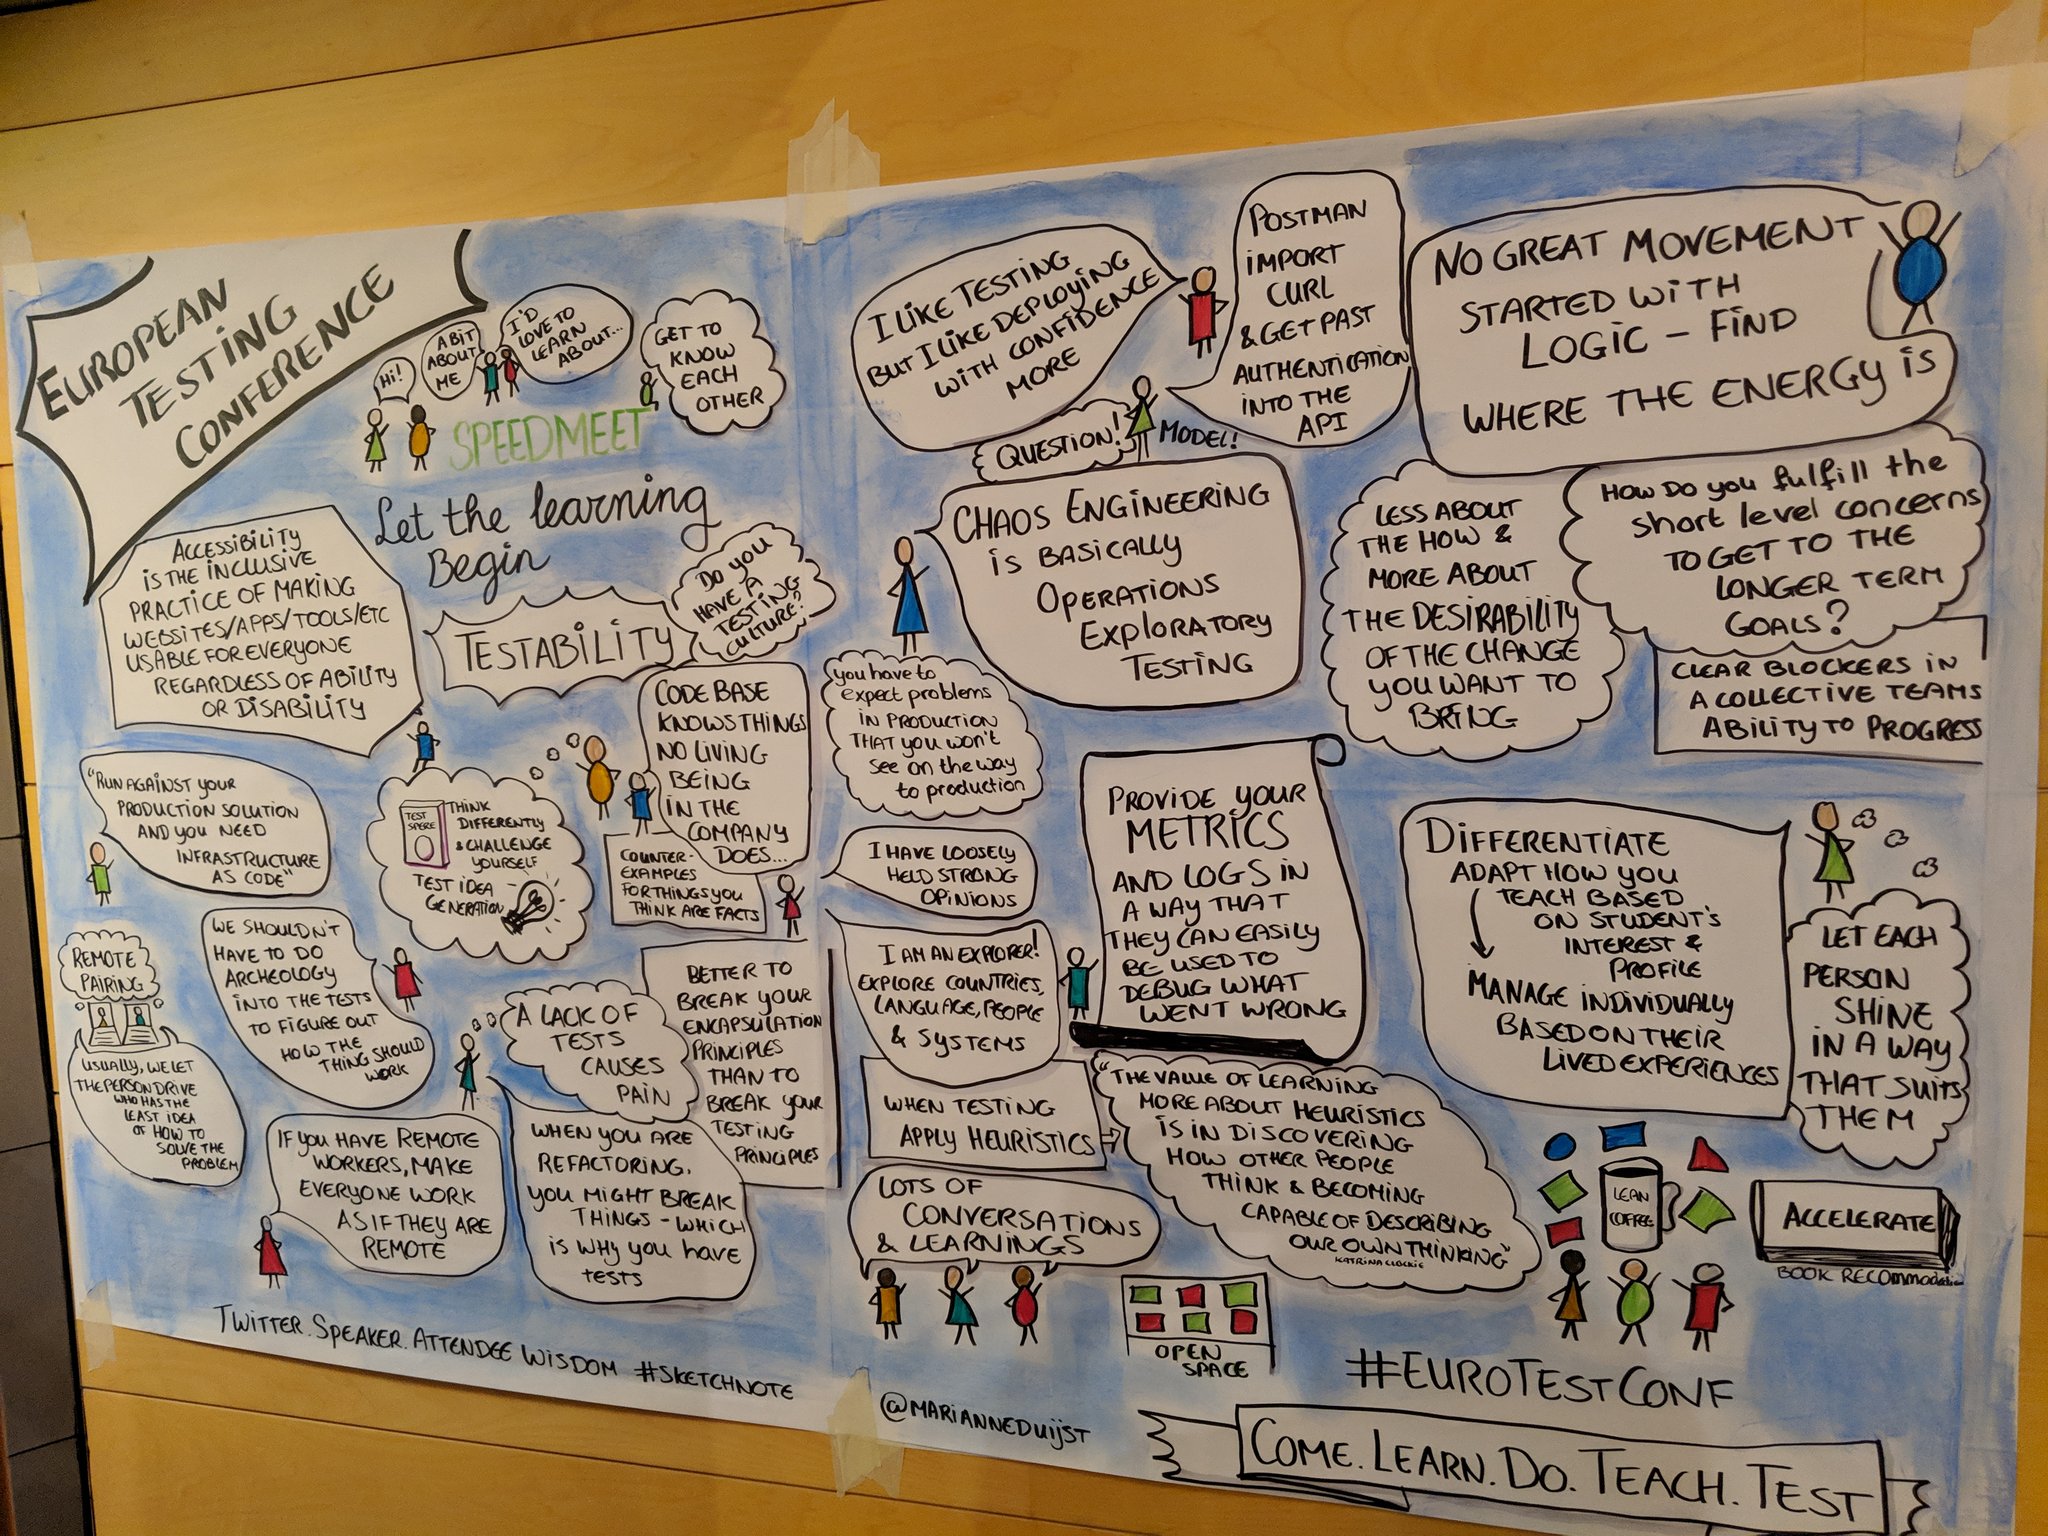 EUROPEAN
TESTING
CONFERENCE
Hi!
A BIT
ABOUT
ME
I'D
LOVE TO
LEARN
ABOUT...
GET TO
KNOW
EACH
OTHER
SPEEDMEET
Let the learning
Begin
ACCESSIBILITY
IS THE INCLUSIVE
PRACTICE OF MAKING
WEBSITES/APPS/TOOLS/ETC
USABLE FOR EVERYONE
REGARDLESS OF ABILITY
OR DISABILITY
TESTABILITY
DO YOU
HAVE A
TESTING
CULTURE?
CODE BASE
KNOWS THINGS
NO LIVING
BEING
IN THE
COMPANY
DOES...
"RUN AGAINST YOUR
PRODUCTION SOLUTION
AND YOU NEED
INFRASTRUCTURE
AS CODE"
TEST
SPERE
THINK
DIFFERENTLY
& CHALLENGE
YOURSELF
TEST IDEA
GENERATION
COUNTER-
EXAMPLES
FOR THINGS YOU
THINK ARE FACTS
REMOTE
PAIRING
USUALLY, WE LET
THE PERSON DRIVE
WHO HAS THE
LEAST IDEA
OF HOW TO
SOLVE THE
PROBLEM
WE SHOULDN'T
HAVE TO DO
ARCHEOLOGY
INTO THE TESTS
TO FIGURE OUT
HOW THE
THING SHOULD
WORK
A LACK OF
TESTS
CAUSES
PAIN
BETTER TO
BREAK YOUR
ENCAPSULATION
PRINCIPLES
THAN TO
BREAK YOUR
TESTING
PRINCIPLES
IF YOU HAVE REMOTE
WORKERS, MAKE
EVERYONE WORK
AS IF THEY ARE
REMOTE
WHEN YOU ARE
REFACTORING,
YOU MIGHT BREAK
THINGS - WHICH
IS WHY YOU HAVE
TESTS
TWITTER. SPEAKER. ATTENDEE WISDOM #SKETCHNOTE
I LIKE TESTING
BUT I LIKE DEPLOYING
WITH CONFIDENCE
MORE
POSTMAN
IMPORT
CURL
& GET PAST
AUTHENTICATION
INTO THE
API
QUESTION!
MODEL!
NO GREAT MOVEMENT
STARTED WITH
LOGIC - FIND
WHERE THE ENERGY IS
CHAOS ENGINEERING
IS BASICALLY
OPERATIONS
EXPLORATORY
TESTING
LESS ABOUT
THE HOW &
MORE ABOUT
THE DESIRABILITY
OF THE CHANGE
YOU WANT TO
BRING
HOW DO YOU fulfill the
short level concerns
TO GET TO THE
LONGER TERM
GOALS?
CLEAR BLOCKERS IN
A COLLECTIVE TEAMS
ABILITY TO PROGRESS
you have to
expect problems
IN PRODUCTION
THAT you won't
see on the way
to production
I HAVE LOOSELY
HELD STRONG
OPINIONS
I AM AN EXPLORER!
EXPLORE COUNTRIES,
LANGUAGE, PEOPLE
& SYSTEMS
PROVIDE YOUR
METRICS
AND LOGS IN
A WAY THAT
THEY CAN EASILY
BE USED TO
DEBUG WHAT
WENT WRONG
DIFFERENTIATE
ADAPT HOW YOU
TEACH BASED
ON STUDENT'S
INTEREST &
PROFILE
MANAGE INDIVIDUALLY
BASED ON THEIR
LIVED EXPERIENCES
LET EACH
PERSON
SHINE
IN A WAY
THAT SUITS
THEM
WHEN TESTING
APPLY HEURISTICS
"THE VALUE OF LEARNING
MORE ABOUT HEURISTICS
IS IN DISCOVERING
HOW OTHER PEOPLE
THINK & BECOMING
CAPABLE OF DESCRIBING
OUR OWN THINKING"
KATRINA CLOKIE
LOTS OF
CONVERSATIONS
& LEARNINGS
OPEN
SPACE
LEAN
COFFEE
ACCELERATE
BOOK RECOMMODATION
#EUROTESTCONF
@MARIANNEDUIJST
COME. LEARN. DO. TEACH. TEST